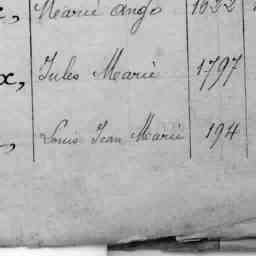 Marie Ange 1022
x, Jules Marie 1797
Louis Jean Marie 194